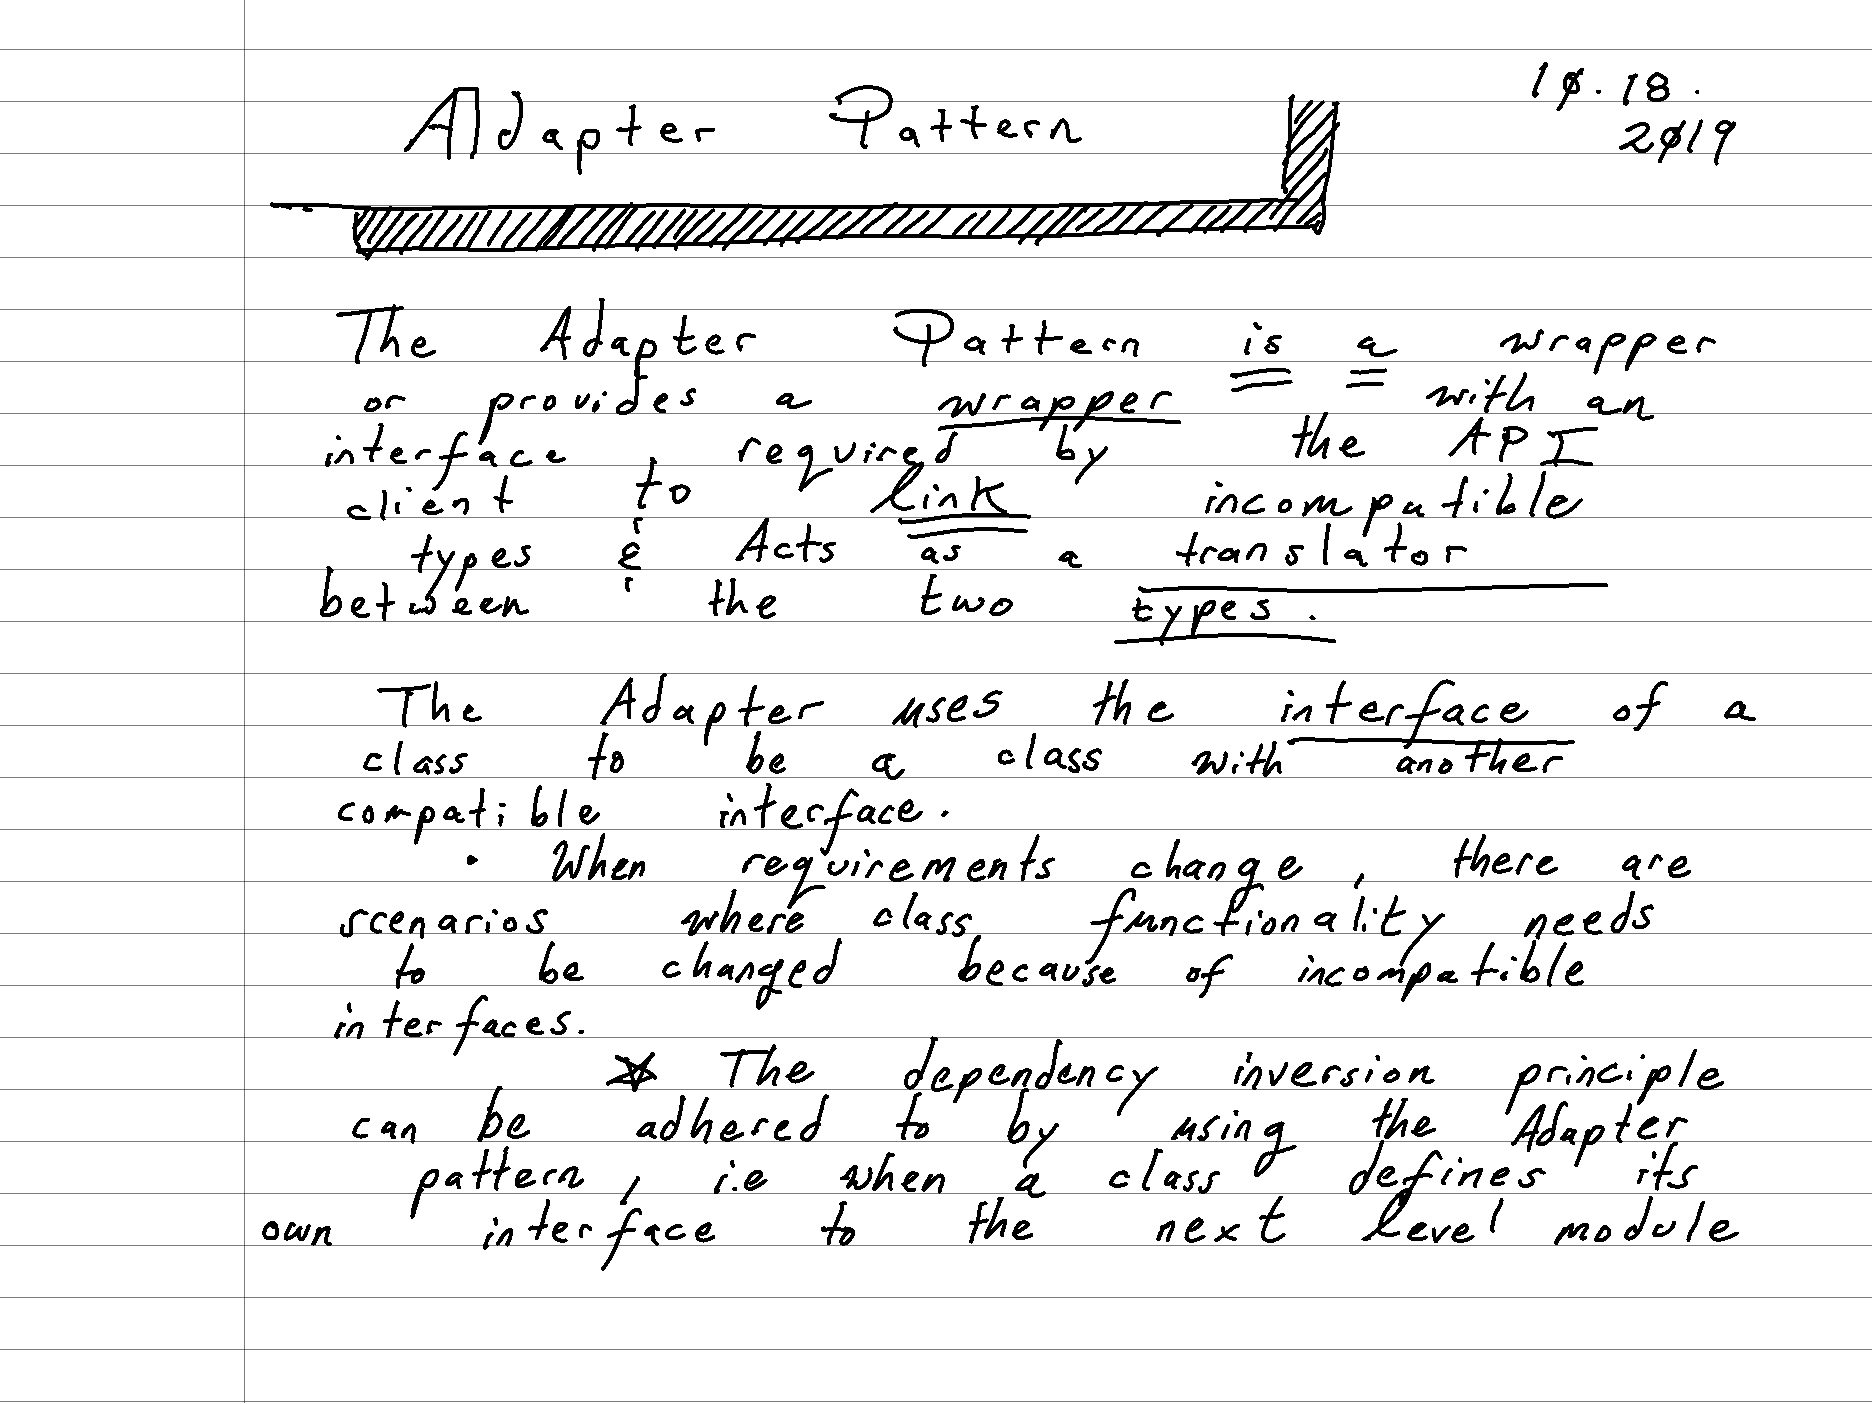 Adapter Pattern
10.18.
2019
The Adapter Pattern is a wrapper
or provides a wrapper with an
interface, required by the API
client to link incompatible
types & Acts as a translator
between the two types.
The Adapter uses the interface of a
class to be a class with another
compatible interface.
• When requirements change, there are
scenarios where class functionality needs
to be changed because of incompatible
interfaces.
☆ The dependency inversion principle
can be adhered to by using the Adapter
pattern, i.e when a class defines its
own interface to the next level module